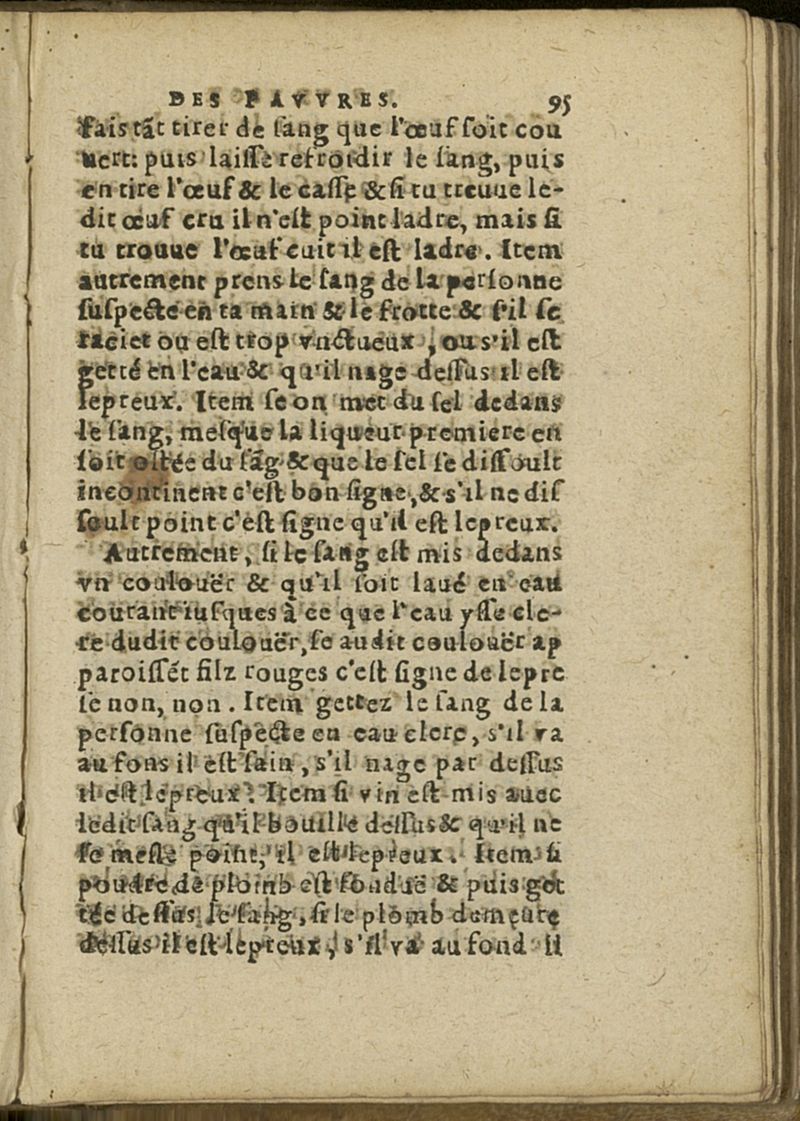 DES PAVVRES. 95
fais tāt tirer de ſang que l'œuf ſoit cou
uert: puis laiſſe refroidir le ſang, puis
en tire l'œuf & le caſſe & ſi tu treuue le-
dit œuf cru il n'eſt point ladre, mais ſi
tu trouue l'œuf cuit il eſt ladre. Item
autrement prens le ſang de la perſonne
ſuſpecte en ta main & le frotte & ſ'il ſe
raciet ou eſt trop vnctueux, ou s'il eſt
getté en l'eau & qu'il nage deſſus il eſt
lepreux. Item ſe on met du ſel dedans
le ſang, meſque la liqueur premiere en
ſoit oſtée du ſāg & que le ſel ſe diſſoult
incontinent c'eſt bon ſigne, & s'il ne diſ
ſoult point c'eſt ſigne qu'il eſt lepreux.
Autrement, ſi le ſang eſt mis dedans
vn coulouër & qu'il ſoit laué en eau
courant iuſques à ce que l'eau yſſe cle-
re dudit coulouër, ſe audit coulouër ap
paroiſſét filz rouges c'eſt ſigne de lepre
ſe non, non. Item gettez le ſang de la
perſonne ſuſpecte en eau clere, s'il va
au fons il eſt ſain, s'il nage par deſſus
il eſt lepreux. Item ſi vin eſt mis auec
ledit ſang qu'il bouille deſſus & qu'il ne
ſe meſle point, il eſt lepreux. Item ſi
poudre de plomb eſt fonduë & puis get
tée deſſus le ſang, ſi le plomb demeure
deſſus il eſt lepreux, s'il va au fond il